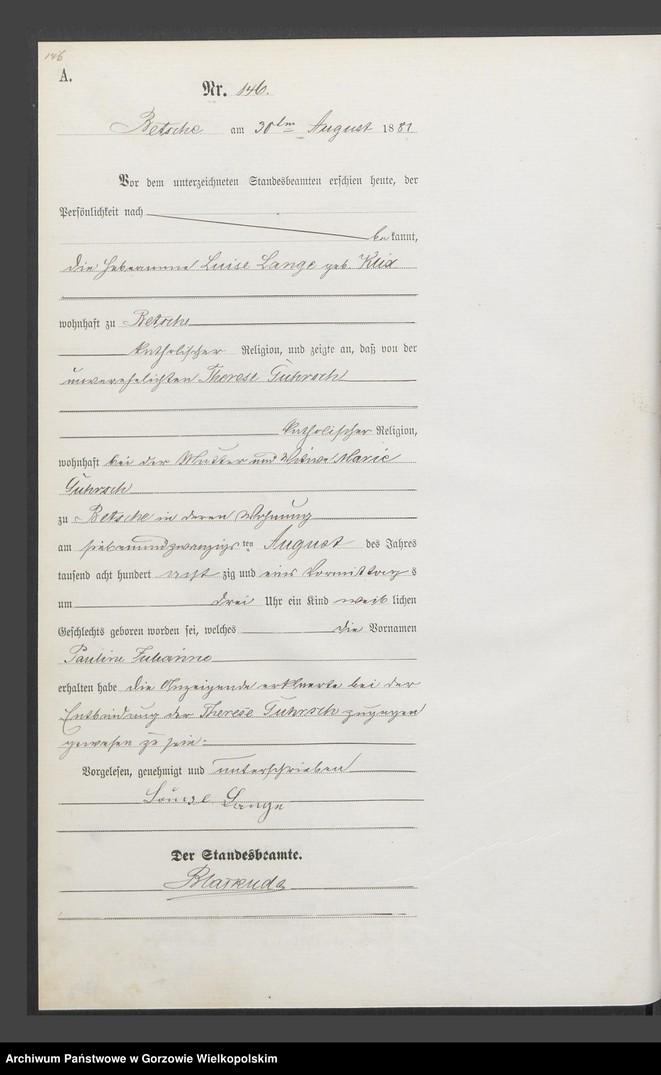 146
A.
Nr. 146.
Betsche am 30ten August 1881
Vor dem unterzeichneten Standesbeamten erschien heute, der
Persönlichkeit nach
bekannt,
die Hebamme Luise Lange geb.
wohnhaft zu Betsche
katholischer Religion, und zeigte an, daß von der
unverehelichten Therese
katholischer Religion,
wohnhaft bei der Mutter und Witwe Marie
zu Betsche in deren Wohnung
am siebenundzwanzigsten August des Jahres
tausend acht hundert achtzig und eins Vormittags
um drei Uhr ein Kind weiblichen
Geschlechts geboren worden sei, welches die Vornamen
Pauline Julianne
erhalten habe die Anzeigende erklaerte bei der
Entbindung der Therese zugegen
gewesen zu sein.
Vorgelesen, genehmigt und unterschrieben
Louise Lange
Der Standesbeamte.
Archiwum Państwowe w Gorzowie Wielkopolskim